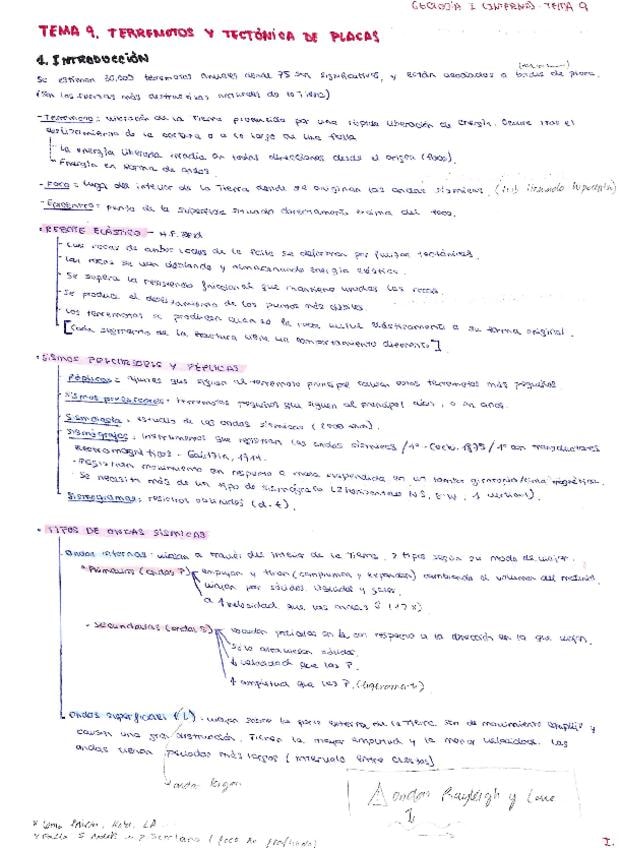 GEOLOGÍA I (INTERNA) - TEMA 9
TEMA 9. TERREMOTOS Y TECTÓNICA DE PLACAS
1. INTRODUCCIÓN
Se estiman 30.000 terremotos anuales donde 75 son significativos, y están asociados a bordes de placa.
(Son las fuerzas más destructivas naturales de la Tierra)
- Terremoto: vibración de la Tierra producida por una rápida liberación de energía. Ocurre tras el
deslizamiento de la corteza a lo largo de una falla
- La energía liberada irradia en todas direcciones desde el origen (foco).
- Energía en forma de ondas.
- Foco: lugar del interior de la Tierra donde se originan las ondas sísmicas.
- Epicentro: punto de la superficie situado directamente encima del foco.
• REBOTE ELÁSTICO - H.F. Reid
- Las rocas de ambos lados de la falla se deforman por fuerzas tectónicas.
- Las rocas se van doblando y almacenando energía elástica.
- Se supera la resistencia friccional que mantiene unidas las rocas.
- Se produce el deslizamiento de los puntos más débiles
- Los terremotos se producen cuando la roca vuelve elásticamente a su forma original.
[Cada segmento de la fractura tiene un comportamiento diferente]
• SISMOS PRECURSORES Y RÉPLICAS
- Réplicas: ajustes que siguen al terremoto principal causan otros terremotos más pequeños.
- Sismos precursores: terremotos pequeños que siguen al principal días, o un años.
- Sismología: estudio de las ondas sísmicas (2000 ).
- Sismógrafos: instrumentos que registran las ondas sísmicas / 1º - 1895 / 1º con transductores
electromagnéticos - Galitzin, 1914.
- Registran movimiento en respuesta a masa suspendida en un tambor giratorio/cinta magnética.
- Se necesita más de un tipo de sismógrafo (2 horizontales NS, E-W, 1 vertical).
- Sismogramas: registros obtenidos (d.t).
• TIPOS DE ONDAS SÍSMICAS
- Ondas internas: viajan a través del interior de la Tierra. 2 tipos según su modo de viajar.
• Primarias (ondas P) empujan y tiran (comprimen y expanden) cambiando el volumen del material.
viajan por sólidos, líquidos y gases.
a ↑ velocidad que las ondas S (1'7 x)
• Secundarias (ondas S) sacuden partículas en con respecto a la dirección en la que viajan.
Sólo atraviesan sólidos.
↓ velocidad que las P.
↑ amplitud que las P. (ligeramente)
- Ondas superficiales (L) - viajan sobre la parte externa de la Tierra. Son de movimiento complejo y
causan una gran destrucción. Tienen la mayor amplitud y la menor velocidad. Las
ondas tienen periodos más largos (intervalo entre crestas)
→ onda largas
⚠ ondas Rayleigh y Love
I.